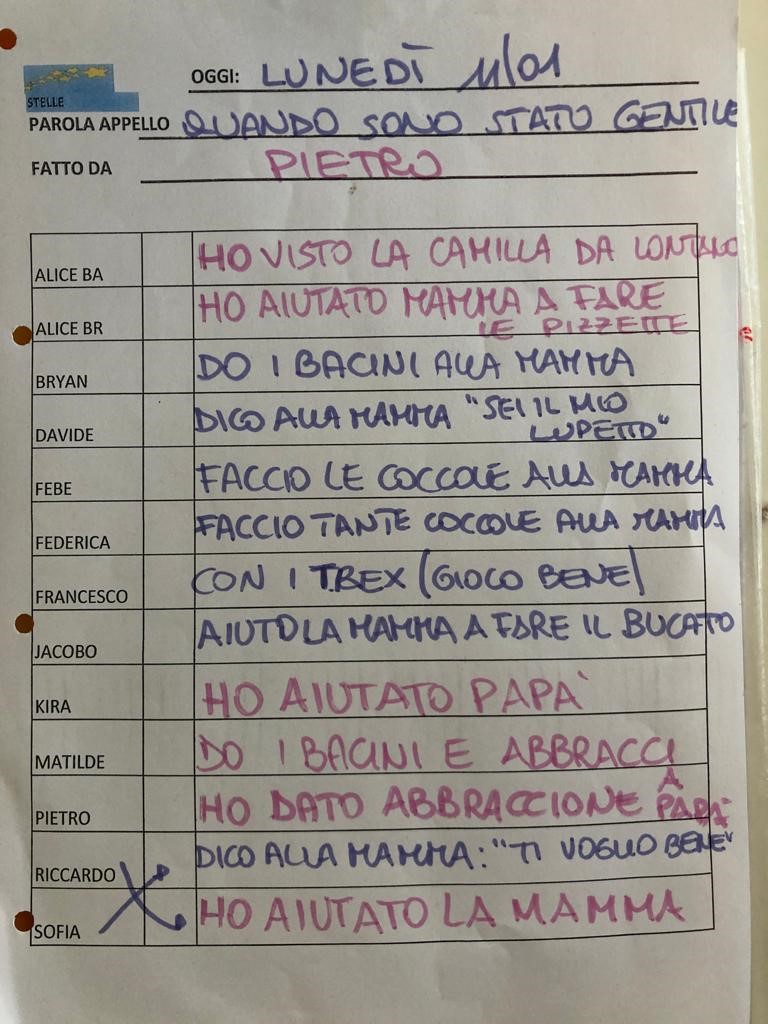 OGGI: LUNEDÌ 11/01
STELLE
PAROLA APPELLO QUANDO SONO STATO GENTILE
FATTO DA PIETRO
ALICE BA HO VISTO LA CAMILLA DA LONTANO
ALICE BR HO AIUTATO MAMMA A FARE
LE PIZZETTE
BRYAN DO I BACINI ALLA MAMMA
DAVIDE DICO ALLA MAMMA "SEI IL MIO
LUPETTO"
FEBE FACCIO LE COCCOLE ALLA MAMMA
FEDERICA FACCIO TANTE COCCOLE ALLA MAMMA
FRANCESCO CON I T.REX (GIOCO BENE)
JACOBO AIUTO LA MAMMA A FARE IL BUCATO
KIRA HO AIUTATO PAPA'
MATILDE DO I BACINI E ABBRACCI
PIETRO HO DATO ABBRACCIONE A PAPA'
RICCARDO DICO ALLA MAMMA: "TI VOGLIO BENE"
SOFIA HO AIUTATO LA MAMMA